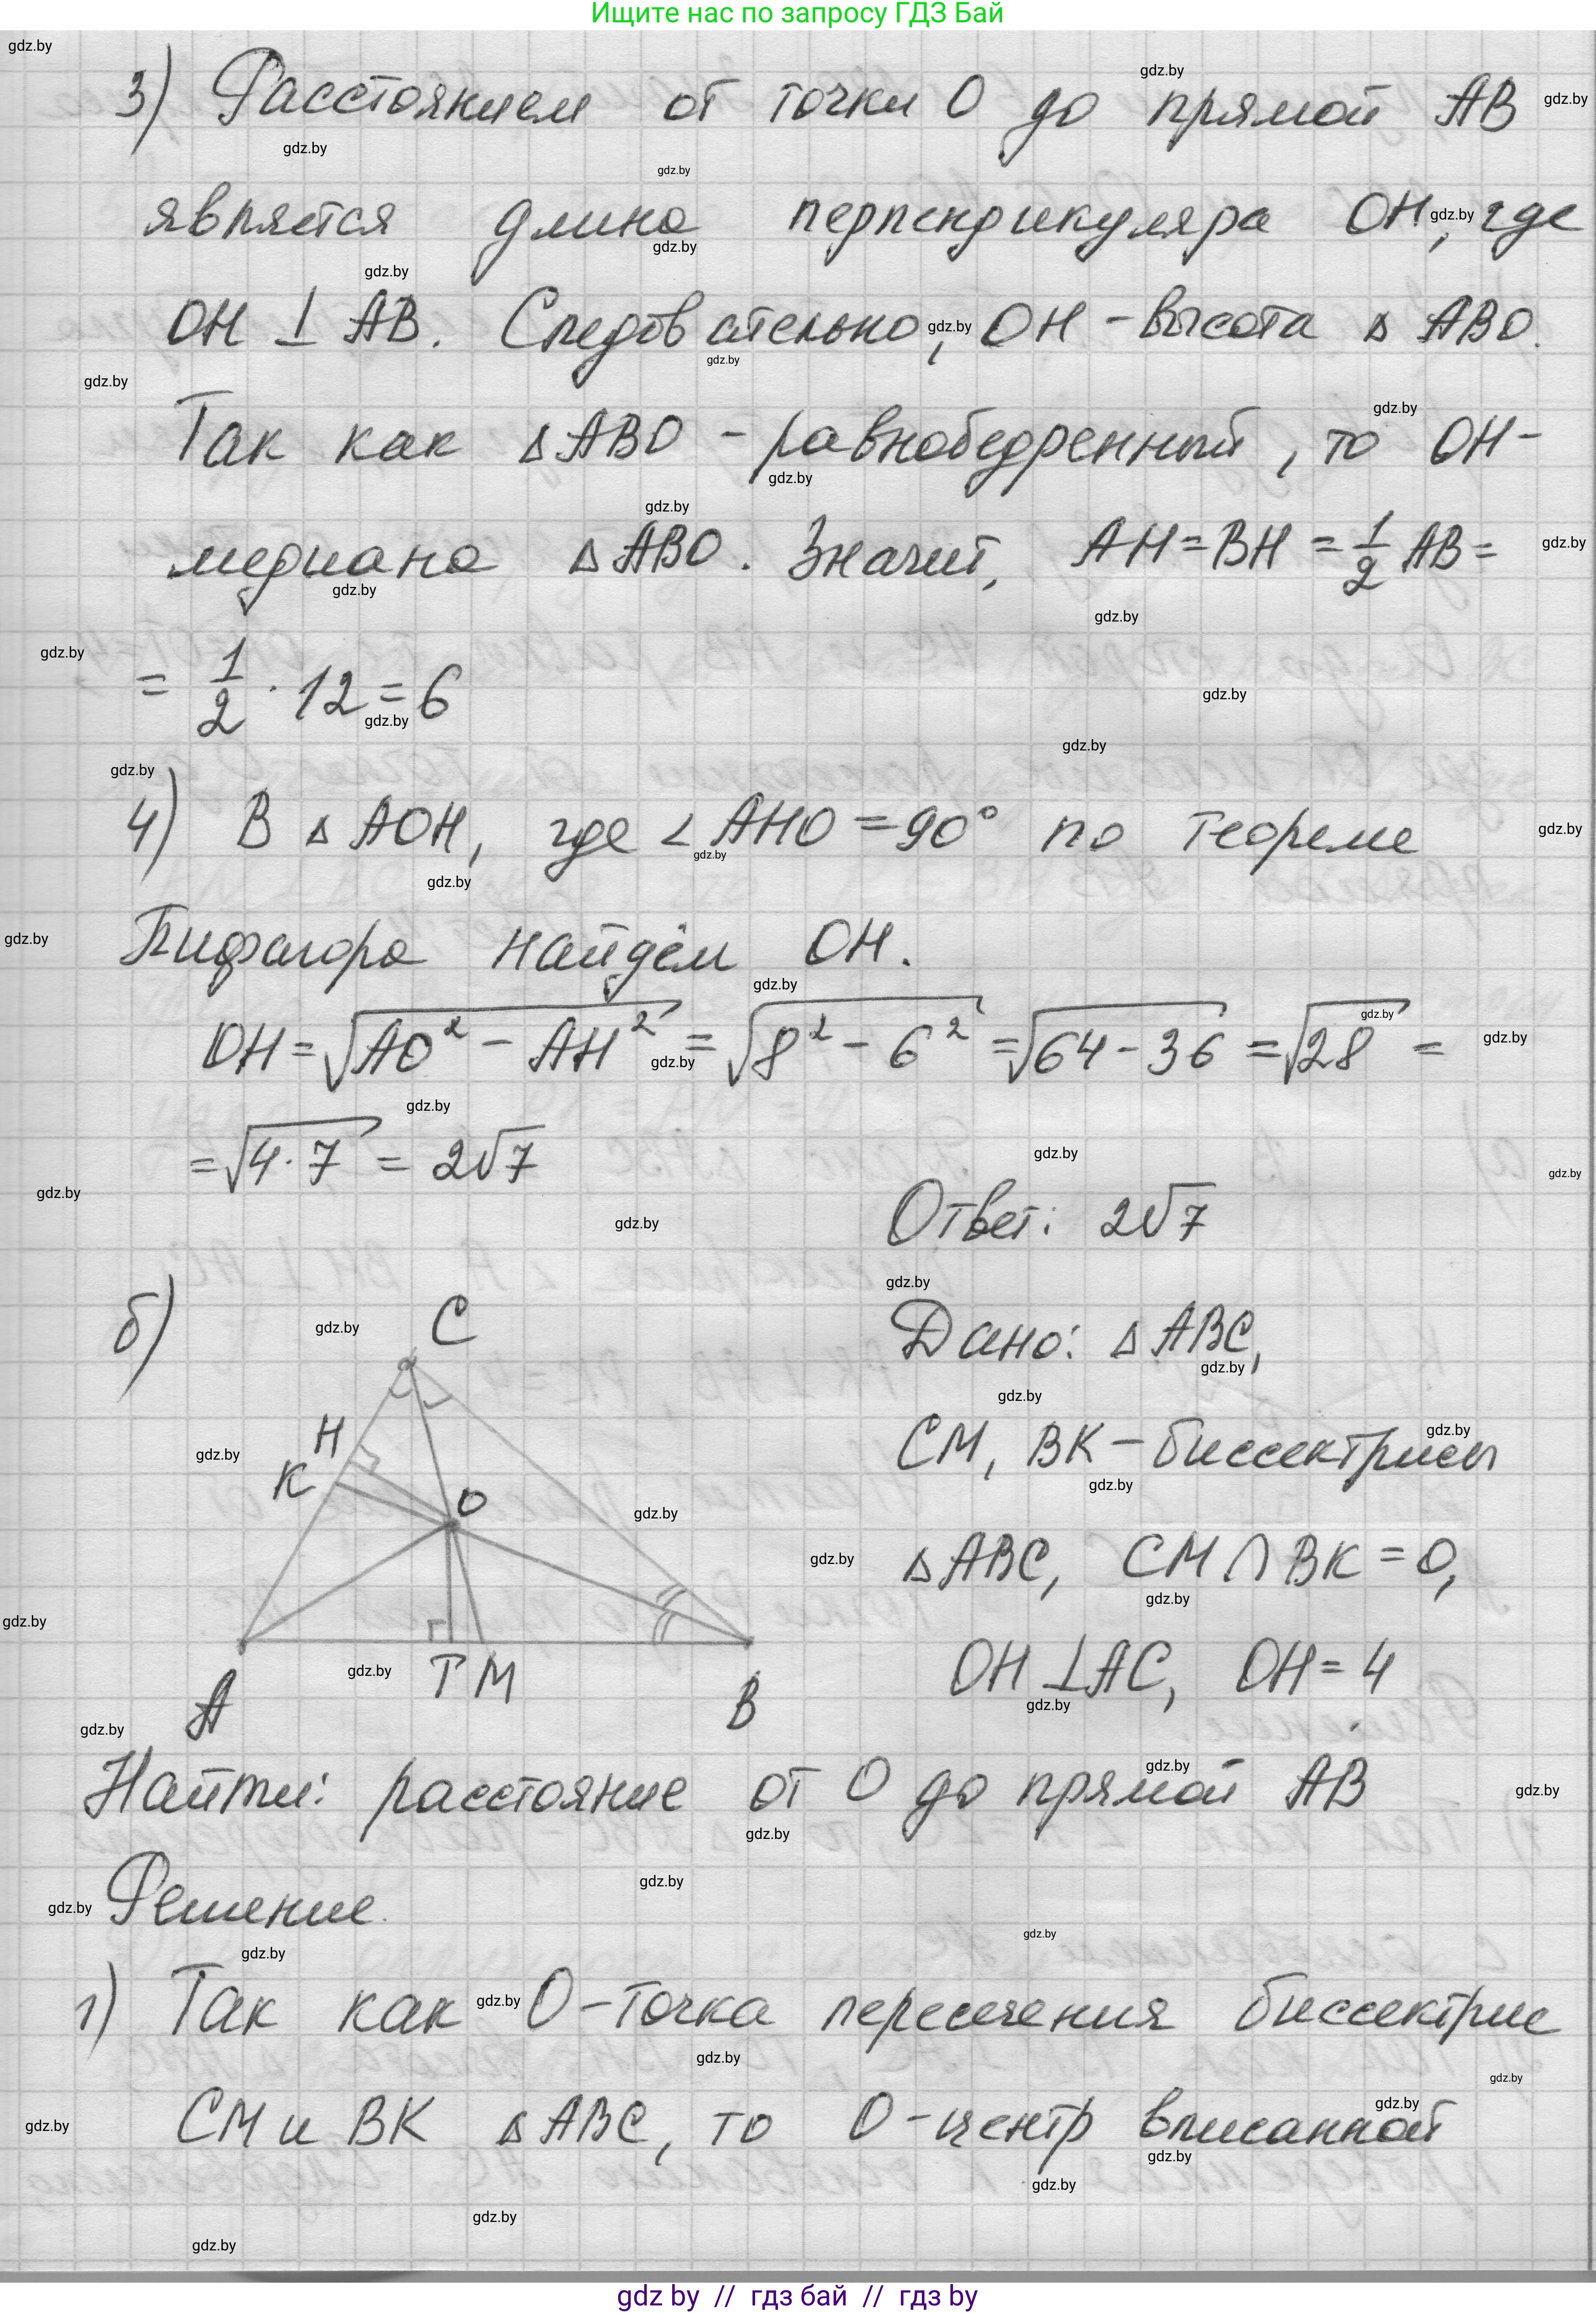 Ищите нас по запросу ГДЗ Бай
3) Расстоянием от точки O до прямой AB
является длина перпендикуляра OH, где
OH ⊥ AB. Следовательно, OH - высота △ ABO.
Так как △ABO - равнобедренный, то OH -
медиана △ABO. Значит, AH = BH = 1/2 AB =
= 1/2 · 12 = 6
4) В △ AOH, где ∠AHO = 90° по теореме
Пифагора найдём OH.
OH = √(AO² - AH²) = √(8² - 6²) = √(64 - 36) = √28 =
= √(4 · 7) = 2√7
Ответ: 2√7
б)
C
H
K
O
A
T M
B
Дано: △ ABC,
CM, BK - биссектрисы
△ABC, CM ∩ BK = O,
OH ⊥ AC, OH = 4
Найти: расстояние от O до прямой AB
Решение.
1) Так как O - точка пересечения биссектрис
CM и BK △ABC, то O - центр вписанной
gdz by // гдз бай // гдз by